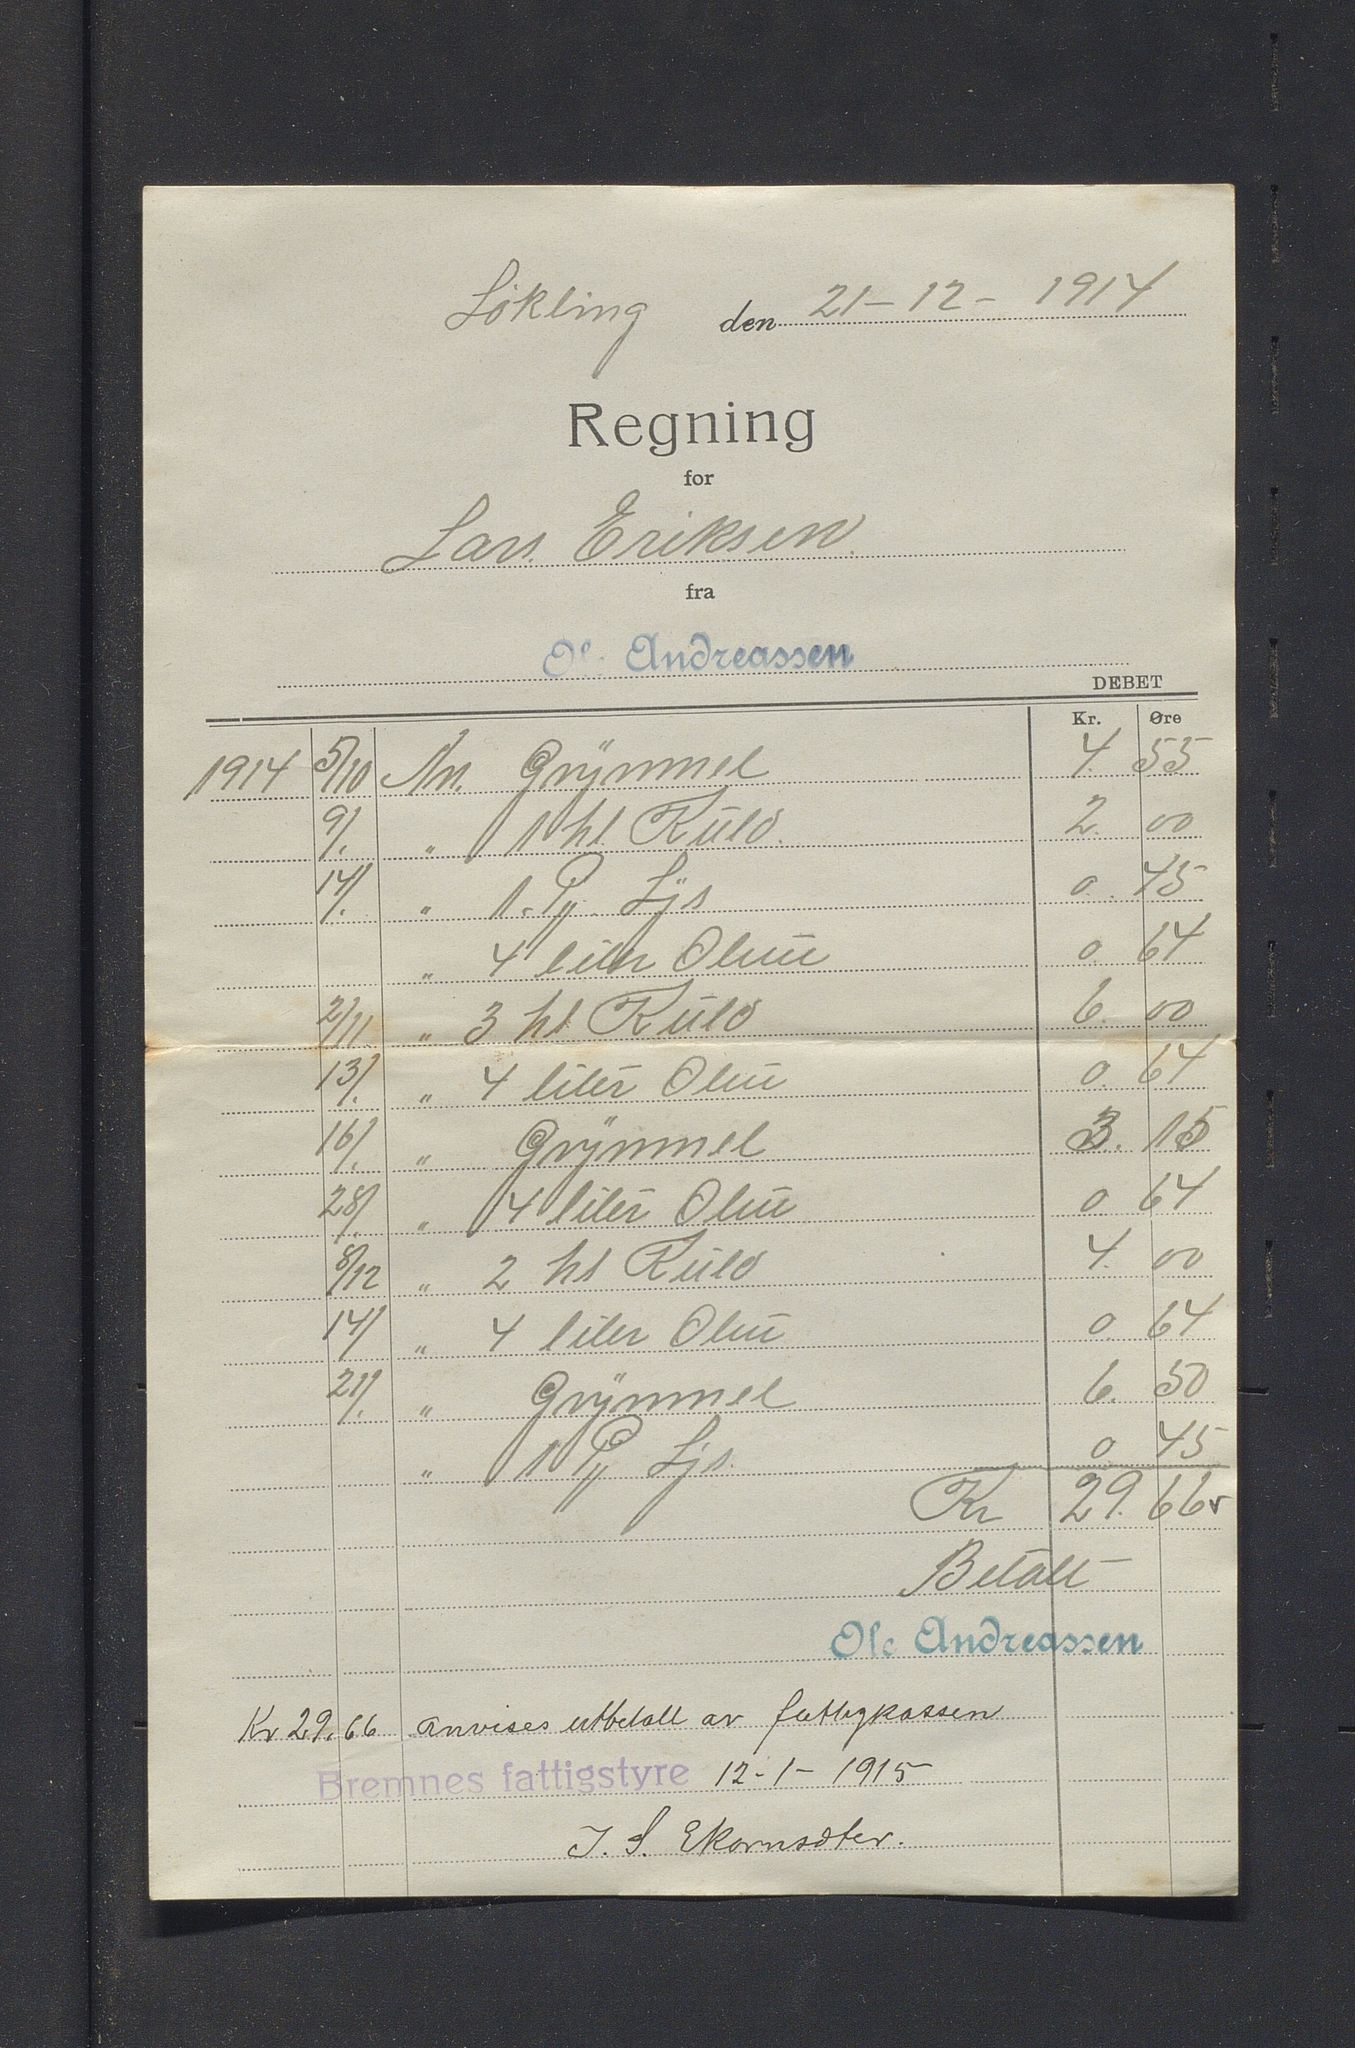 Løkling den 21-12-1914
Regning
for
Lars. Eriksen.
fra
Ole Andreassen
DEBET
Kr. Øre
1914 5/10 An. Grynmel 4. 55
9/. " 1 hl. Kuld. 2. 00
14/. " 1. Pj. Ljs 0. 45
" 4 liter Olun 0. 64
2/11. " 3 hl Kuld 6. 00
13/. " 4 liter Olun 0. 64
16/. " Grynmel 3. 15
28/. " 4 liter Olun 0 64
8/12 " 2 hl Kuld 4. 00
14/ " 4 liter Olun 0. 64
21/. " Grynmel 6. 50
" 1 Pj Ljs. 0. 45
Kr 29. 66
Betalt
Ole Andreassen
Kr 29.66 anvises utbetalt av fattigkassen
Bremnes fattigstyre 12-1-1915